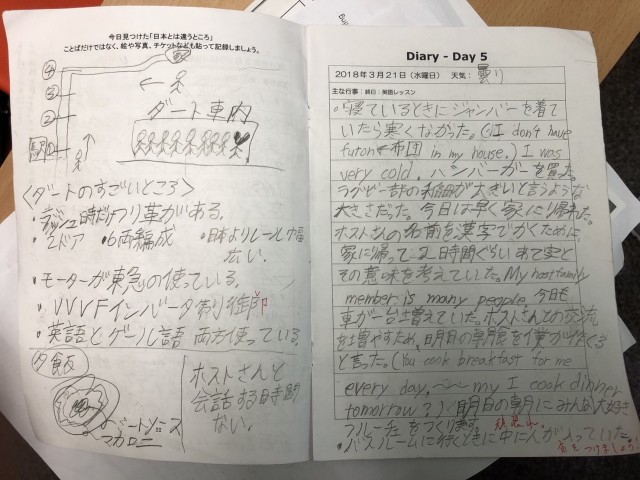 今日見つけた「日本とは違うところ」
ことばだけではなく、絵や写真、チケットなども貼って記録しましょう。
④
③
②
ダート車内
<ダートのすごいところ>
・ラッシュ時だけつり革がある。
・2ドア ・6両編成 ・日本よりレール幅
広い.
・モーターが東急の使っている.
・VVVFインバータ制御
・英語とゲール語 両方使っている.
夕飯
ミートソース
マカロニ
ホストさんと
会話する時間
ない.
Diary - Day 5
2018年3月21日(水曜日) 天気: 曇り
主な行事:終日:英語レッスン
・寝ているときにジャンバーを着て
いたら寒くなかった。(I don't have
futon←布団 in my house.) I was
very cold. ハンバーガーを買った。
大きさだった。今日は早く家に帰れた。
ホストさんの名前を漢字でかくために、
家に帰って2時間ぐらいあて字と
その意味を考えていた。My host family
member is many people. 今日も
車が一台増えていた。ホストさんとの交流
を増やすため、明日の朝食を僕が作る
と言った。(You cook breakfast for me
every day, 〜〜 my I cook dinner
tomorrow?) (明日の朝にみんな大好き
フルーチェをつくります。
・バスルームに行くときに中に人が入っていた。
気をつけましょう。